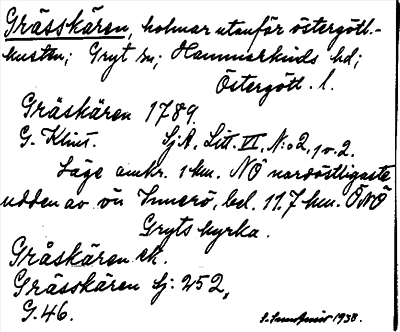 Grässkären, holmar utanför östergötl.-
kusten; Gryt sn; Hammarkinds hd;
Östergötl. l.
Gräskären 1789.
G. Klint. SjA. Litt. VI, N:o 2, 1 o. 2.
Läge omkr. 1 km. NÖ nordöstligaste
udden av ön Innerö, bel. 11.7 km. ÖNÖ
Gryts kyrka.
Gråskären ek.
Grässkären Sj: 252,
G. 46.
1938.